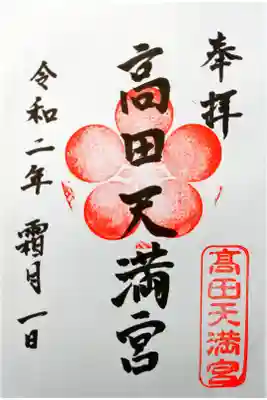 奉拝
髙田天満宮
令和二年 霜月一日
髙田天満宮